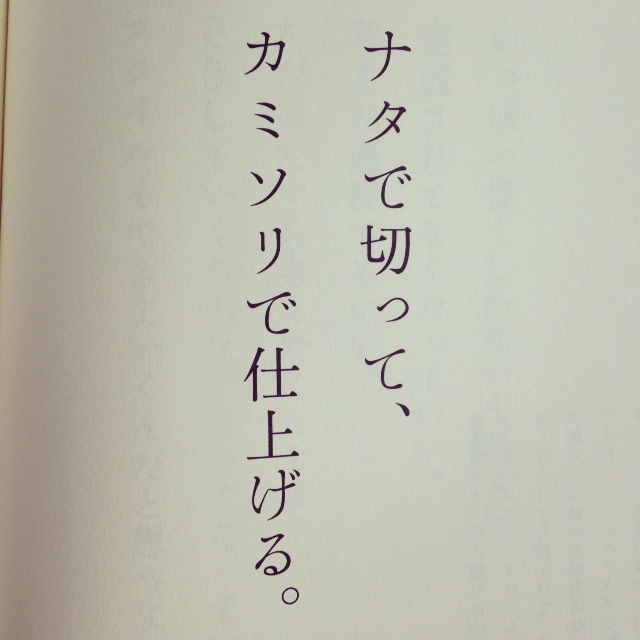 ナタで切って、
カミソリで仕上げる。